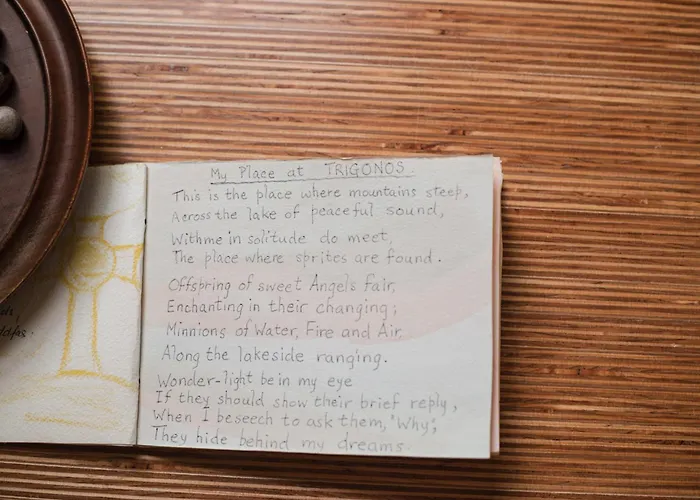 My Place at TRIGONOS
This is the place where mountains steep,
Across the lake of peaceful sound,
With me in solitude do meet,
The place where sprites are found.
Offspring of sweet Angels Fair,
Enchanting in their changing;
Minnions of Water, Fire and Air,
Along the lakeside ranging.
Wonder-light be in my eye
If they should show their brief reply,
When I beseech to ask them, 'Why',
They hide behind my dreams.